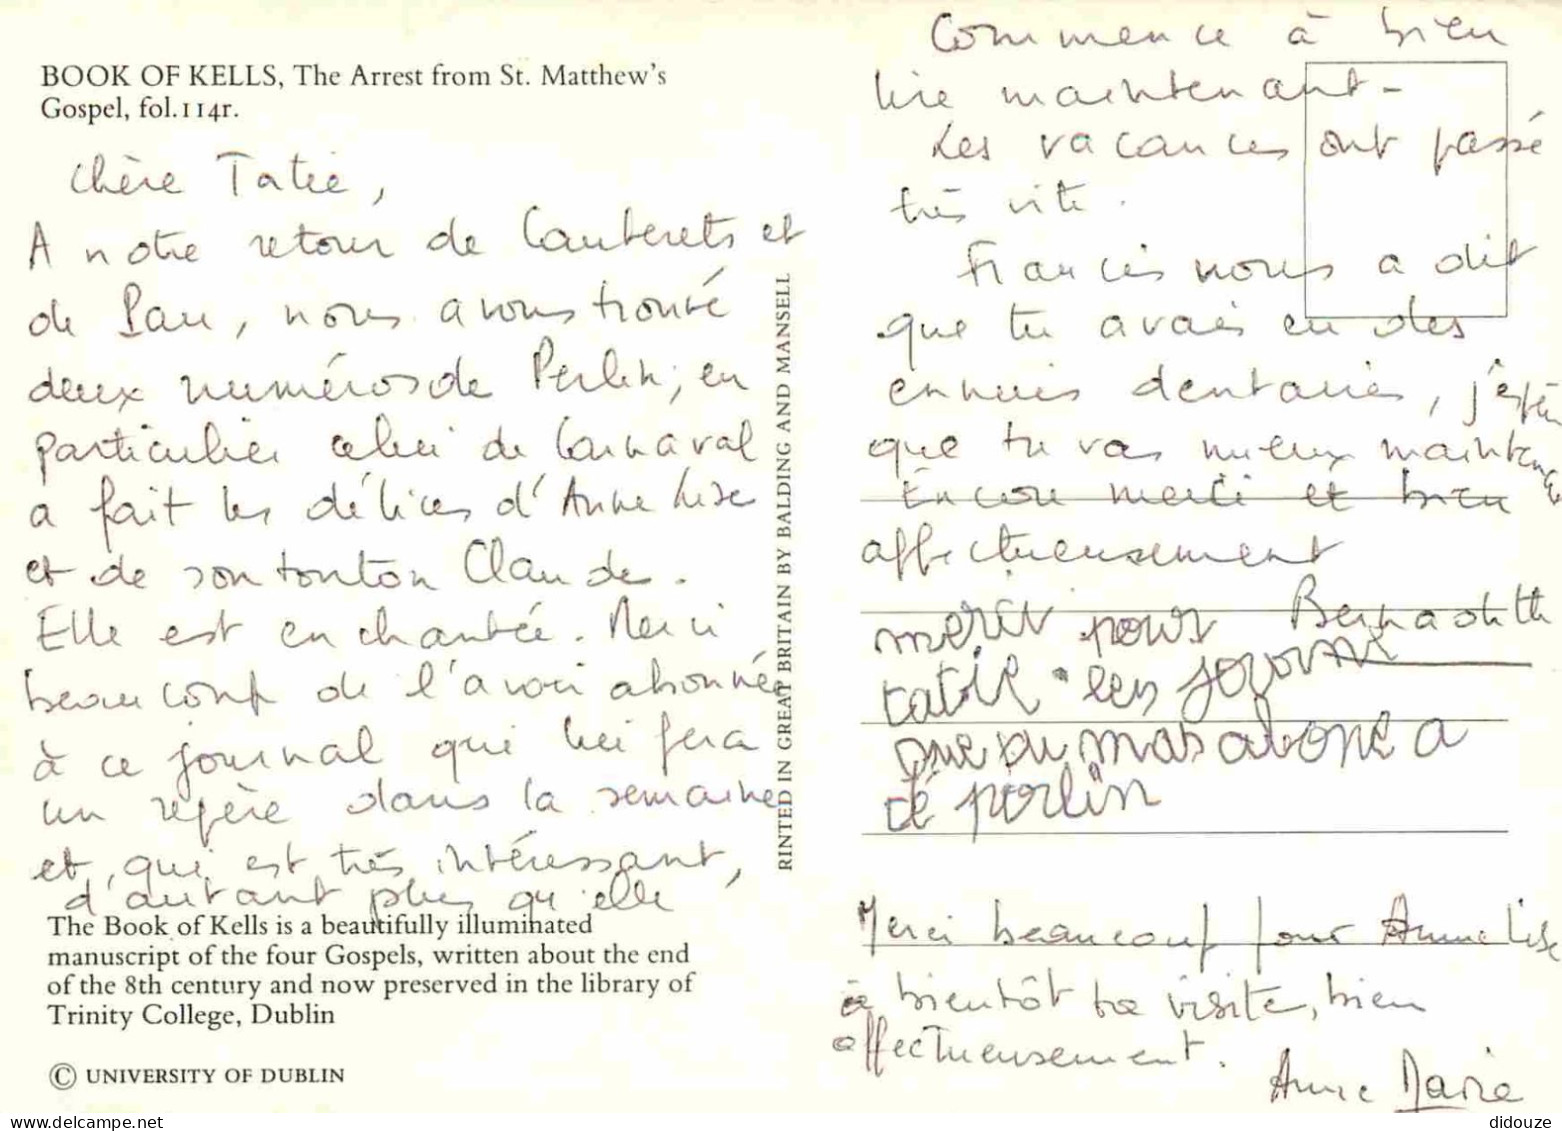 BOOK OF KELLS, The Arrest from St. Matthew's
Gospel, fol.114r.
Chère Tatie,
A notre retour de Cauterets et
de Pau, nous avons trouvé
deux numéros de Perlin, en
particulier celui de Carnaval
a fait les délices d'Anne Lise
et de son tonton Claude.
Elle est enchantée. Merci
beaucoup de l'avoir abonnée
à ce journal qui lui fera
un repère dans la semaine
et, qui est très intéressant,
d'autant plus qu'elle
The Book of Kells is a beautifully illuminated
manuscript of the four Gospels, written about the end
of the 8th century and now preserved in the library of
Trinity College, Dublin
© UNIVERSITY OF DUBLIN
RINTED IN GREAT BRITAIN BY BALDING AND MANSELL
Commence à bien
lire maintenant-
Les vacances ont passé
très vite.
Francis nous a dit
que tu avais eu des
ennuis dentaires, j'espère
que tu vas mieux maintenant
Encore merci et bien
affectueusement
Bernadette
merci pour
tatie les journ
que tu mas aboné a
cé perlin
Merci beaucoup pour Anne Lise
à bientôt ta visite, bien
affectueusement.
Anne Marie
didouze